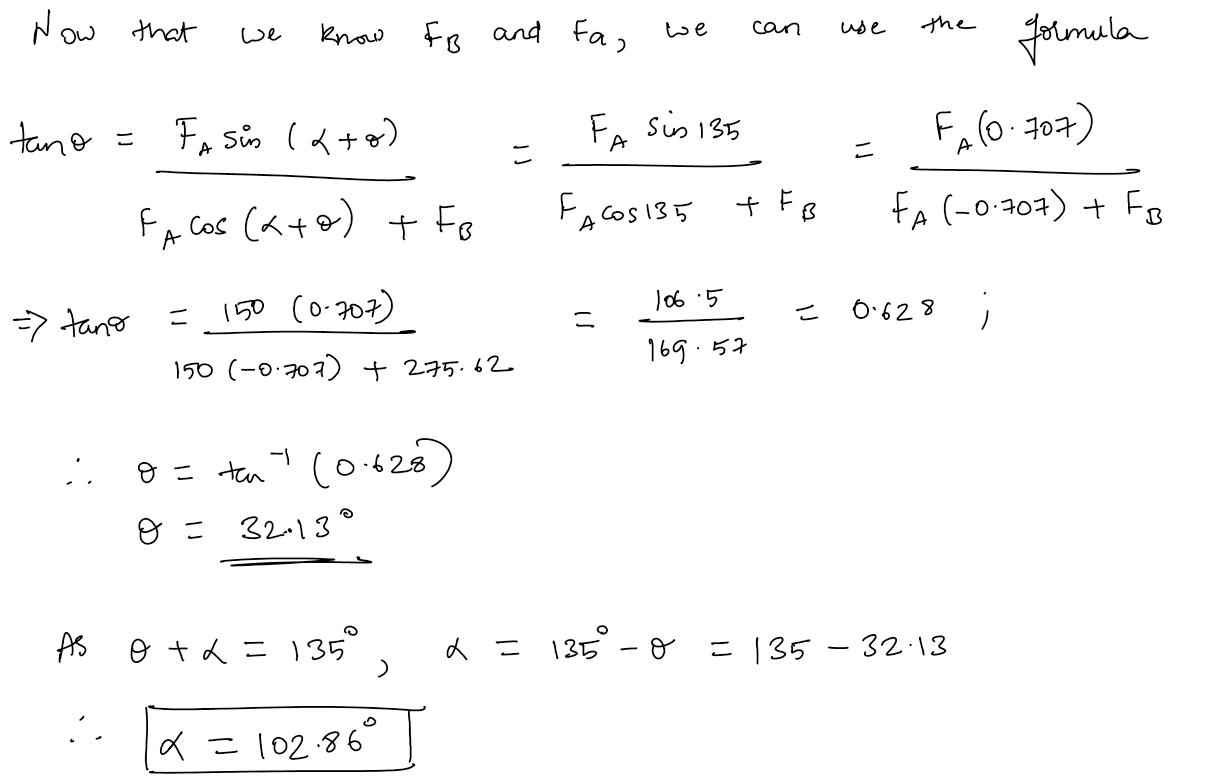 Now that we know F_B and Fa, we can use the formula
tanθ = F_A sin (α+θ) / F_A cos (α+θ) + F_B = F_A sin 135 / F_A cos 135 + F_B = F_A (0.707) / F_A (-0.707) + F_B
⇒ tanθ = 150 (0.707) / 150 (-0.707) + 275.62 = 106.5 / 169.57 = 0.628 ;
∴ θ = tan⁻¹ (0.628)
θ = 32.13°
As θ + α = 135°, α = 135° - θ = 135 - 32.13
∴ α = 102.86°